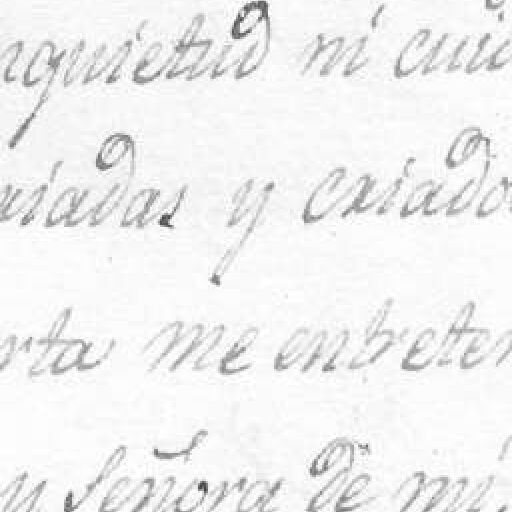 nquietud ni cuid
riadas y criado
rta me entreten
y Señora de mi